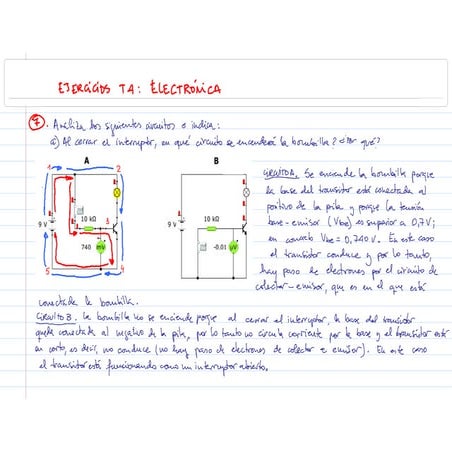 EJERCICIOS T4: ELECTRÓNICA
7. Analiza los siguientes circuitos e indica:
a) Al cerrar el interruptor, en qué circuito se encenderá la bombilla? ¿Por qué?
A
B
1 2
9 V
10 kΩ
3
740 mV
5 4
9 V
10 kΩ
-0.01 µV
CIRCUITO A. Se enciende la bombilla porque
la base del transistor está conectada al
positivo de la pila y porque la tensión
base-emisor (VBE) es superior a 0,7V;
en concreto VBE = 0,740V. En este caso
el transistor conduce y por lo tanto,
hay paso de electrones por el circuito de
colector-emisor, que es en el que está
conectada la bombilla.
CIRCUITO B. La bombilla no se enciende porque al cerrar el interruptor, la base del transistor
queda conectada al negativo de la pila, por lo tanto no circula corriente por la base y el transistor está
en corte, es decir, no conduce (no hay paso de electrones de colector a emisor). En este caso
el transistor está funcionando como un interruptor abierto.